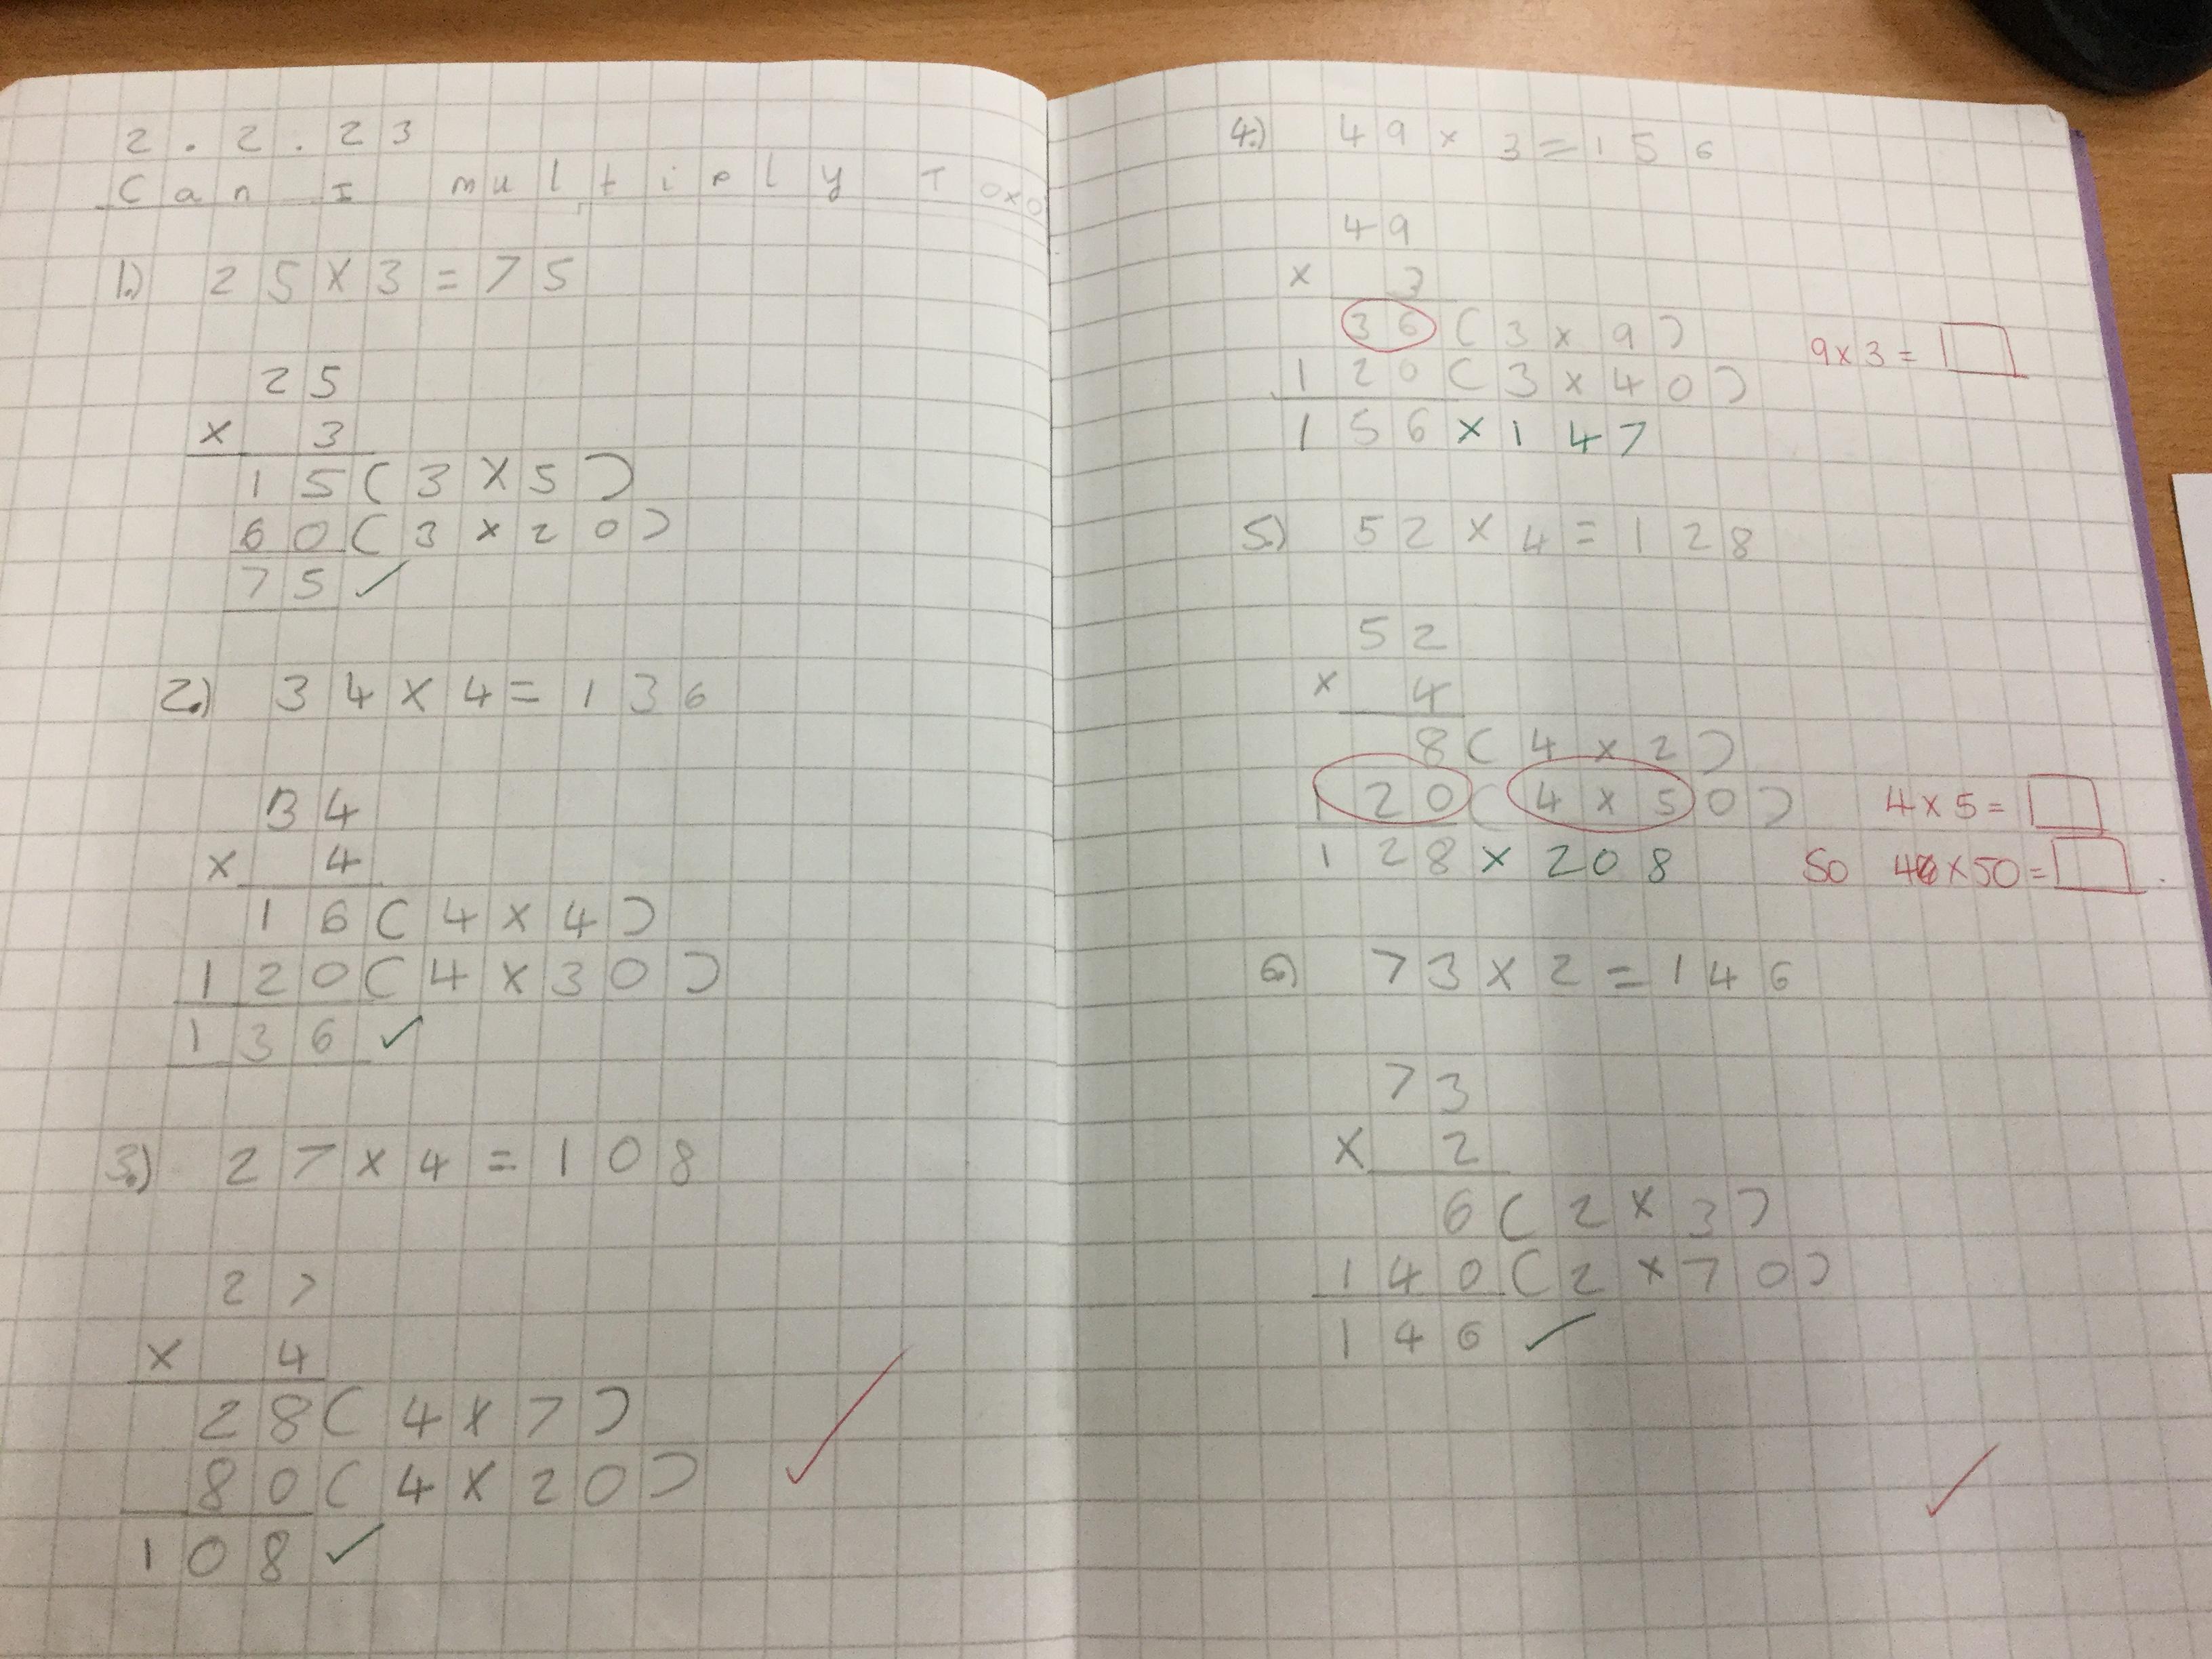 2.2.23
Can I multiply TO×O
1.) 25×3=75
25
× 3
15(3×5)
60(3×20)
75 ✓
2.) 34×4=136
34
× 4
16(4×4)
120(4×30)
136 ✓
3.) 27×4=108
27
× 4
28(4×7)
80(4×20)
108 ✓
4.) 49×3=156
49
× 3
36(3×9) 9×3=□
120(3×40)
156×147
5.) 52×4=128
52
× 4
8(4×2)
120(4×50) 4×5=□
128×208 So 4×50=□.
6.) 73×2=146
73
× 2
6(2×3)
140(2×70)
146 ✓